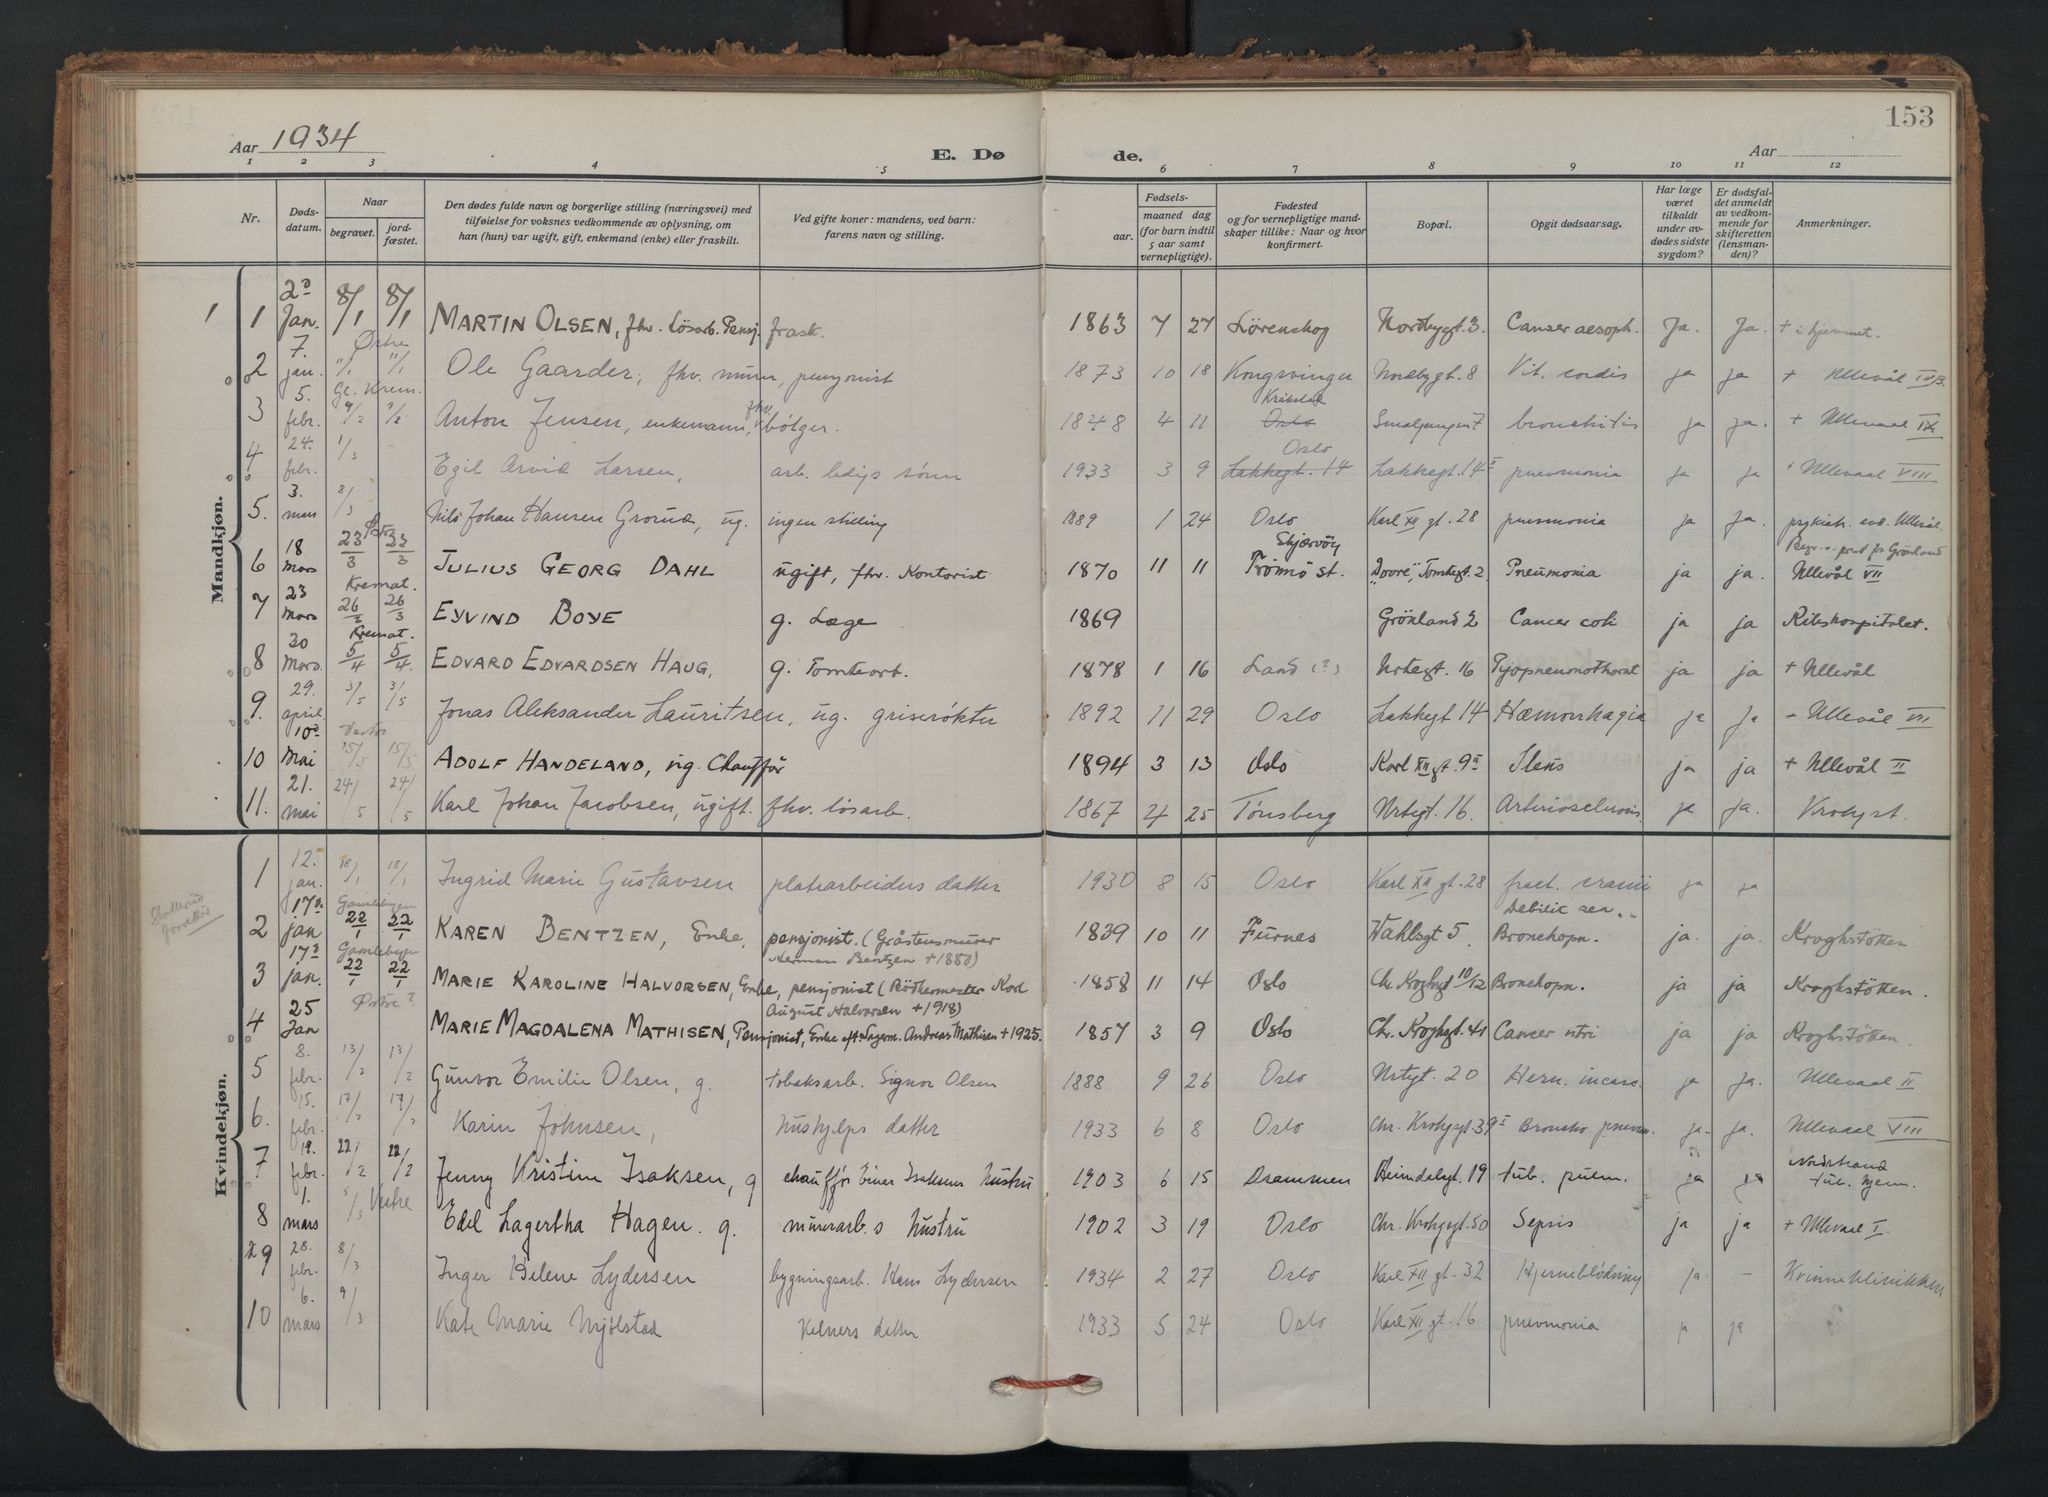 153
Aar 1934
E. Dø
de.
Aar
1 2 3 4 5 6 7 8 9 10 11 12
Nr.
Døds-
datum.
Naar
begravet.
jord-
fæstet.
Den dødes fulde navn og borgerlige stilling (næringsvei) med
tilføielse for voksnes vedkommende av oplysning, om
han (hun) var ugift, gift, enkemand (enke) eller fraskilt.
Ved gifte koner: mandens, ved barn:
farens navn og stilling.
Fødsels-
aar.
maaned dag
(for barn indtil
5 aar samt
vernepligtige).
Fødested
og for vernepligtige mand-
skaper tillike: Naar og hvor
konfirmert.
Bopæl.
Opgit dødsaarsag.
Har læge
været
tilkaldt
under av-
dødes sidste
sygdom?
Er dødsfal-
det anmeldt
av vedkom-
mende for
skifteretten
(lensman-
den)?
Anmerkninger.
Mandkjøn.
1 1 2 Jan. 8/1 8/1 MARTIN OLSEN, fhv. Løsarb. Pensj. frask. 1863 7 27 Lørenskog Nordbygt. 3. Cancer aesoph. Ja. Ja. + i hjemmet.
Østre
2 7. jan. "/1 "/1 Ole Gaarder, fhv. murer, pensjonist 1873 10 18 Kongsvinger Nordbygt. 8 Vit. cordis ja ja + Ullevål
Ge. Krem.
3 5. febr. 9/2 9/2 Anton Jensen, enkemann, fhv. bølger. 1848 4 11 Kråkstad Oslo 7 bronchitis ja ja. + Ullevaal IX
4 24. febr. 1/3 - Egil Arvid Larsen, arb. ledigs sønn 1933 3 9 Oslo Lakkegt. 14 Lakkegt. 14 II pnevmonia ja ja + Ullevaal VIII
5. 3. mars 8/3 Nils Johan Hansen Grorud, ug. ingen stilling 1889 1 24 Oslo Karl XII gt. 28 pnevmonia ja ja. psykiatr. avd. Ullevål.
Østre
6 18 Mars 23/3 23/3 JULIUS GEORG DAHL ugift, fhv. Kontorist 1870 11 11 Skjærvöy Trömsö st. "Dovre", Tomtegt. 2 Pneumonia ja ja. Ullevål VII
Kremat.
7 23 Mars 26/3 26/3 EYVIND BOYE g. Læge 1869 Grönland 2 Cancer coli ja ja Rikshospitalet.
Kremat.
8 30 Mars 5/4 5/4 EDVARD EDVARDSEN HAUG, g. Tomtearb. 1878 1 16 Land (?) Urtegt. 16 Pyopneumothorat ja ja + Ullevål
9. 29. april 3/5 3/5 Jonas Aleksander Lauritsen, ug. griserøkter 1892 11 29 Oslo Lakkegt 14 Hæmorrhagia ja ja - Ullevål VII
10 10 Mai 15/5 15/5 ADOLF HANDELAND, ug. Chauffør 1894 3 13 Oslo Karl XII gt. 9 II Ileus ja ja + Ullevål II
11. 21. mai 24/5 24/5 Karl Johan Jacobsen, ugift. fhv. løsarb. 1867 4 25 Tønsberg Urtegt. 16. Arteriosclerosis ja ja. Krohgst.
Kvindekjøn.
1 12. jan. 18/1 18/1 Ingrid Marie Gustavsen platearbeiders datter 1930 8 15 Oslo Karl XII gt. 28 fract. cranii ja ja
Gamlebyen
2 17 jan 22/1 22/1 KAREN BENTZEN, Enke, pensjonist. (Gråstensmurer
Herman Bentzen +1880) 1839 10 11 Furnes Wahlsgt 5 Debilit. sen. Bronchopn. ja. ja. Kroghstötten
Gamlebyen
3 17 jan. 22/1 22/1 MARIE KAROLINE HALVORSEN, Enke, pensjonist (Bödkermester Karl
August Halvorsen +1918) 1858 11 14 Oslo Chr. Kroghgt 10/12 Bronchopn. ja ja Kroghstötten.
Østre ?
4 25 Jan MARIE MAGDALENA MATHISEN, Pensjonist, Enke eft. Lagerm. Andreas Mathisen +1925. 1857 3 9 Oslo Chr. Kroghgt. 41 Cancer utri ja ja Kroghstötten.
5 8. febr. 13/2 13/2 Gunvor Emilie Olsen, g. tobaksarb. Signor Olsen 1888 9 26 Oslo Urtegt. 20 Hern. incarc. ja ja. Ullevaal II
6. 15. febr. 17/2 17/2 Karin Johnsen, hushjelps datter 1933 6 8 Oslo Chr. Krohgsgt. 39 I Broncho pnevm. ja- ja. Ullevaal VIII
7 19. febr. 22/2 22/2 Jenny Kristine Isaksen, g chauffør Einar Isaksens hustru 1903 6 15 Drammen Heimdalsgt. 19 tub. pulm. ja ja Nordstrand
tub. hjem.
Vestre
8 1. mars 5/3 Edel Lagertha Hagen. g. murerarb.s hustru 1902 3 19 Oslo Chr. Krohgsgt. 50 Sepsis ja ja + Ullevaal I.
9 28. febr. 8/3 Inger Helene Lydersen bygningsarb. Hans Lydersen 1934 2 27 Oslo Karl XII gt. 32 Hjerneblödning ja - Kvinneklinikken
10 6. mars 9/3 Kate Marie Mjølstad Kelners datter 1933 5 24 Oslo Karl XII gt. 16 pnevmonia ja ja